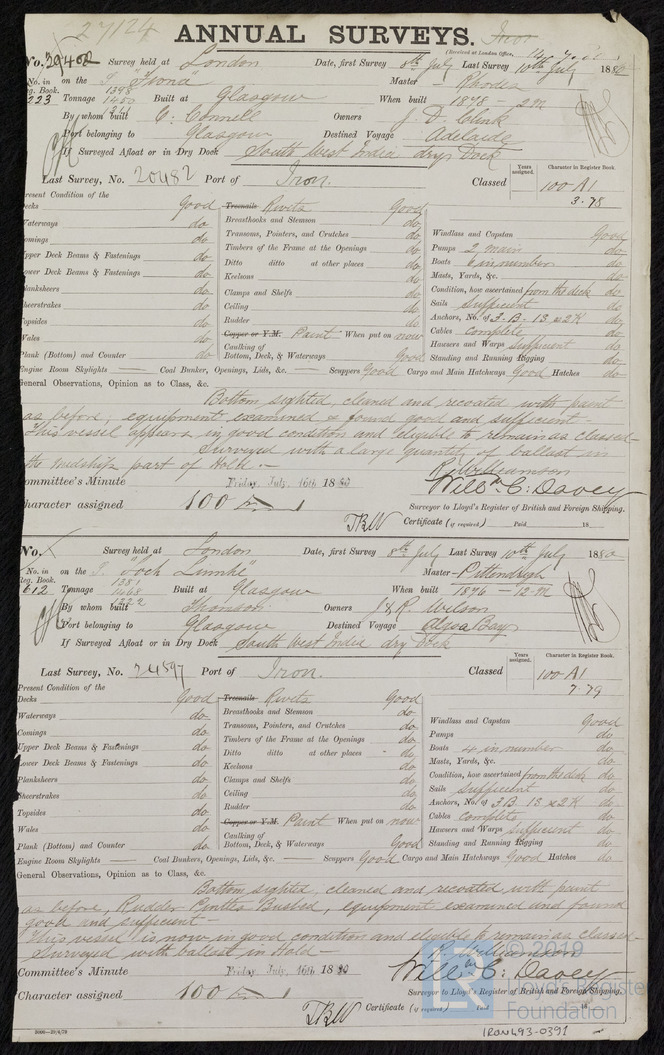 27124
ANNUAL SURVEYS. Iron
(Received at London Office,
No. Survey held at London Date, first Survey 8th July Last Survey 10th July 1880
No. in on the S. "Fiona" Master Rhodes
Reg. Book. 1398
223 Tonnage 1450 Built at Glasgow When built 1878 - 2M
By whom built C. Connell Owners J. D. Clink
Port belonging to Glasgow Destined Voyage Adelaide
If Surveyed Afloat or in Dry Dock South West India dry Dock
Last Survey, No. 20482 Port of Iron. Classed
Years assigned. Character in Register Book.
100 A1
3.78
Present Condition of the
Decks Good
Waterways do
Comings do
Upper Deck Beams & Fastenings do
Lower Deck Beams & Fastenings do
Planksheers do
Sheerstrakes do
Topsides do
Wales do
Plank (Bottom) and Counter do
Treenails Rivets Good
Breasthooks and Stemson do
Transoms, Pointers, and Crutches do
Timbers of the Frame at the Openings do
Ditto ditto at other places do
Keelsons do
Clamps and Shelfs do
Ceiling do
Rudder do
Copper or Y.M. Paint When put on now
Caulking of
Bottom, Deck, & Waterways Good
Windlass and Capstan Good
Pumps 2 main do
Boats 6 in number do
Masts, Yards, &c. do
Condition, how ascertained from the deck do
Sails sufficient do
Anchors, No. of 3.B. 1S. & 2K do
Cables complete do
Hawsers and Warps sufficient do
Standing and Running Rigging do
Engine Room Skylights — Coal Bunkers, Openings, Lids, &c. — Scuppers Good Cargo and Main Hatchways Good Hatches do
General Observations, Opinion as to Class, &c.
Bottom sighted, cleaned and recoated with paint
as before, equipment examined & found good and sufficient
This vessel appears in good condition and eligible to remain as classed—
Surveyed with a large quantity of ballast in
the midship part of Hold.—
R. Williamson
Committee's Minute Friday July. 16th 1880 Willm. C. Davey
Character assigned 100 A 1
Surveyor to Lloyd's Register of British and Foreign Shipping.
TBW Certificate (if required) Paid 18
No. Survey held at London Date, first Survey 8th July Last Survey 10th July 1880
No. in on the S. "Loch Linnhe" Master Pittendrigh
Reg. Book. 1381
612 Tonnage 1468 Built at Glasgow When built 1876 - 12M
1322
By whom built Thomson Owners J & R. Wilson
Port belonging to Glasgow Destined Voyage Algoa Bay
If Surveyed Afloat or in Dry Dock South West India dry Dock
Last Survey, No. 24597 Port of Iron. Classed
Years assigned. Character in Register Book.
100 A1
7.79
Present Condition of the
Decks Good
Waterways do
Comings do
Upper Deck Beams & Fastenings do
Lower Deck Beams & Fastenings do
Planksheers do
Sheerstrakes do
Topsides do
Wales do
Plank (Bottom) and Counter do
Treenails Rivets Good
Breasthooks and Stemson do
Transoms, Pointers, and Crutches do
Timbers of the Frame at the Openings do
Ditto ditto at other places do
Keelsons do
Clamps and Shelfs do
Ceiling do
Rudder do
Copper or Y.M. Paint When put on now
Caulking of
Bottom, Deck, & Waterways Good
Windlass and Capstan Good
Pumps do
Boats 4 in number do
Masts, Yards, &c. do
Condition, how ascertained from the deck do
Sails sufficient do
Anchors, No. of 3B. 1S. & 2K do
Cables complete do
Hawsers and Warps sufficient do
Standing and Running Rigging do
Engine Room Skylights — Coal Bunkers, Openings, Lids, &c. — Scuppers Good Cargo and Main Hatchways Good Hatches do
General Observations, Opinion as to Class, &c.
Bottom sighted, cleaned and recoated with paint
as before, Rudder Pintles Bushed, equipment examined and found
good and sufficient—
This vessel is now in good condition and eligible to remain as classed—
Surveyed with ballast in Hold—
R. Williamson
Committee's Minute Friday July. 16th 1880 Willm. C. Davey
Character assigned 100 A 1
Surveyor to Lloyd's Register of British and Foreign Shipping.
TBW Certificate (if required) Paid 18
© 2019
Lloyd's Register
Foundation
IRON493-0391